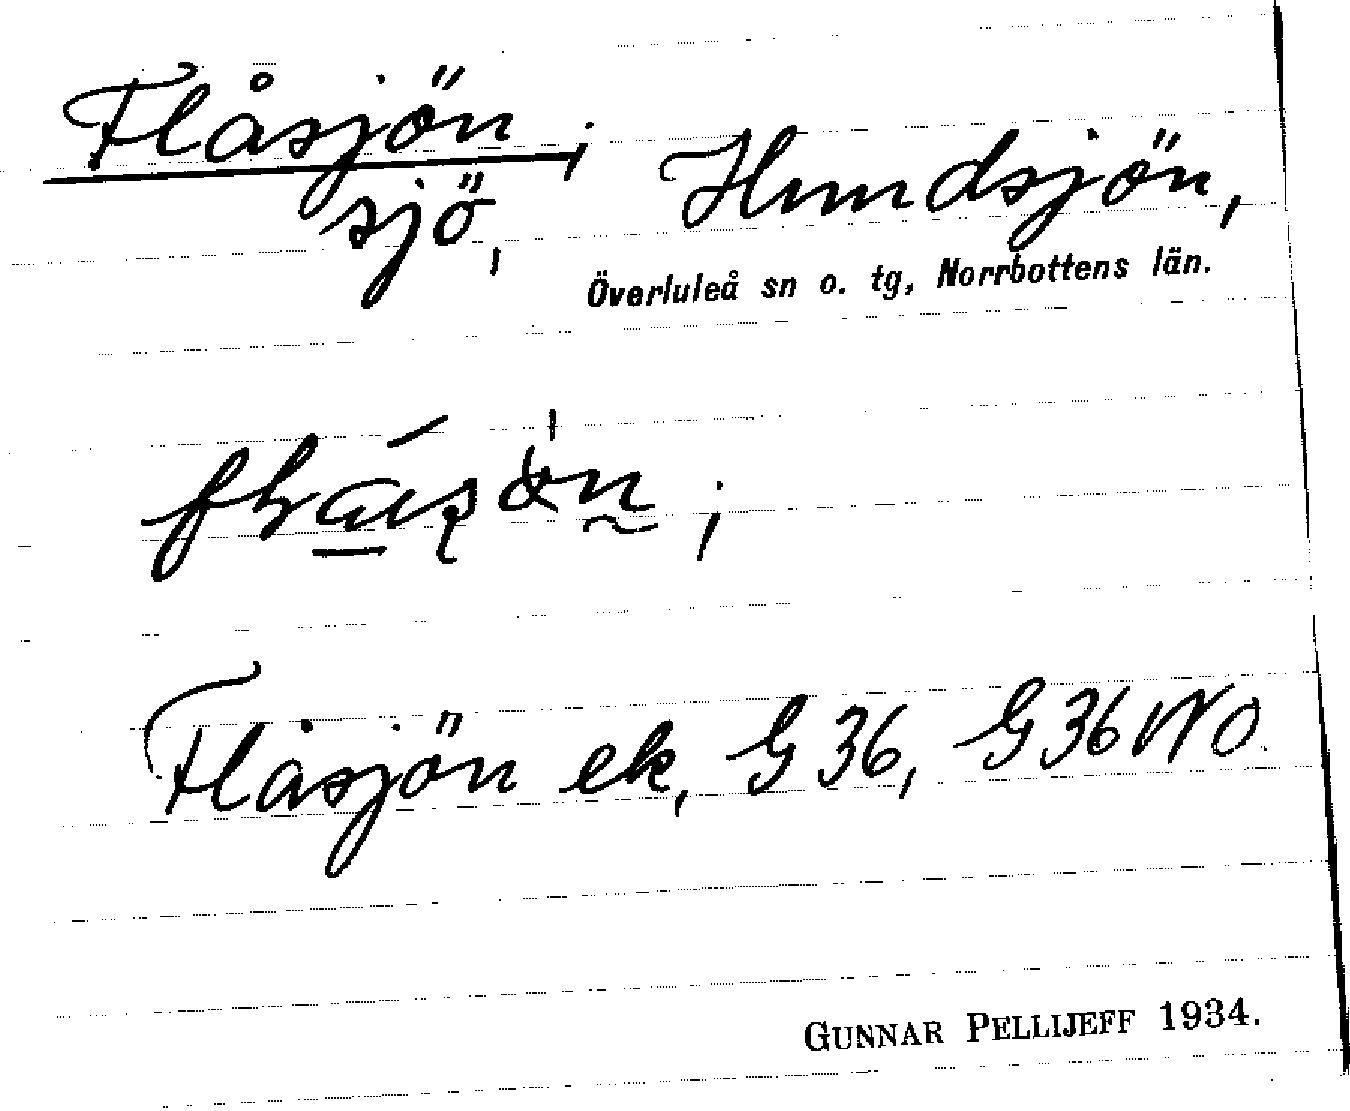 Flåsjön; Hundsjön,
sjö,
Överluleå sn o. tg, Norrbottens län.
Flåsjön ek, G 36, G 36 NO
GUNNAR PELLIJEFF 1934.